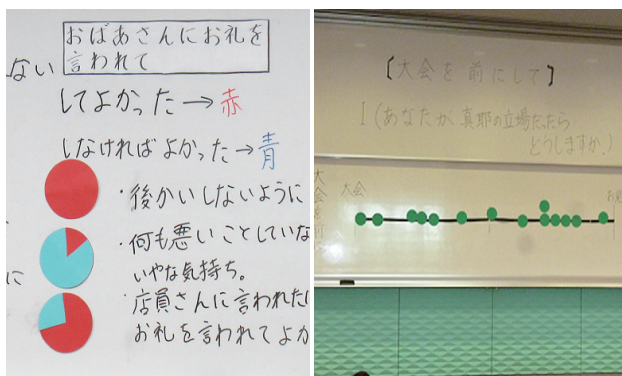 ない
おばあさんにお礼を
言われて
してよかった→赤
しなければよかった→青
・後かいしないように
・何も悪いことしていな
いやな気持ち。
・店員さんに言われた
お礼を言われてよか
に
【大会を前にして】
I(あなたが真耶の立場だったら
どうしますか.)
大会
大会を前
お見